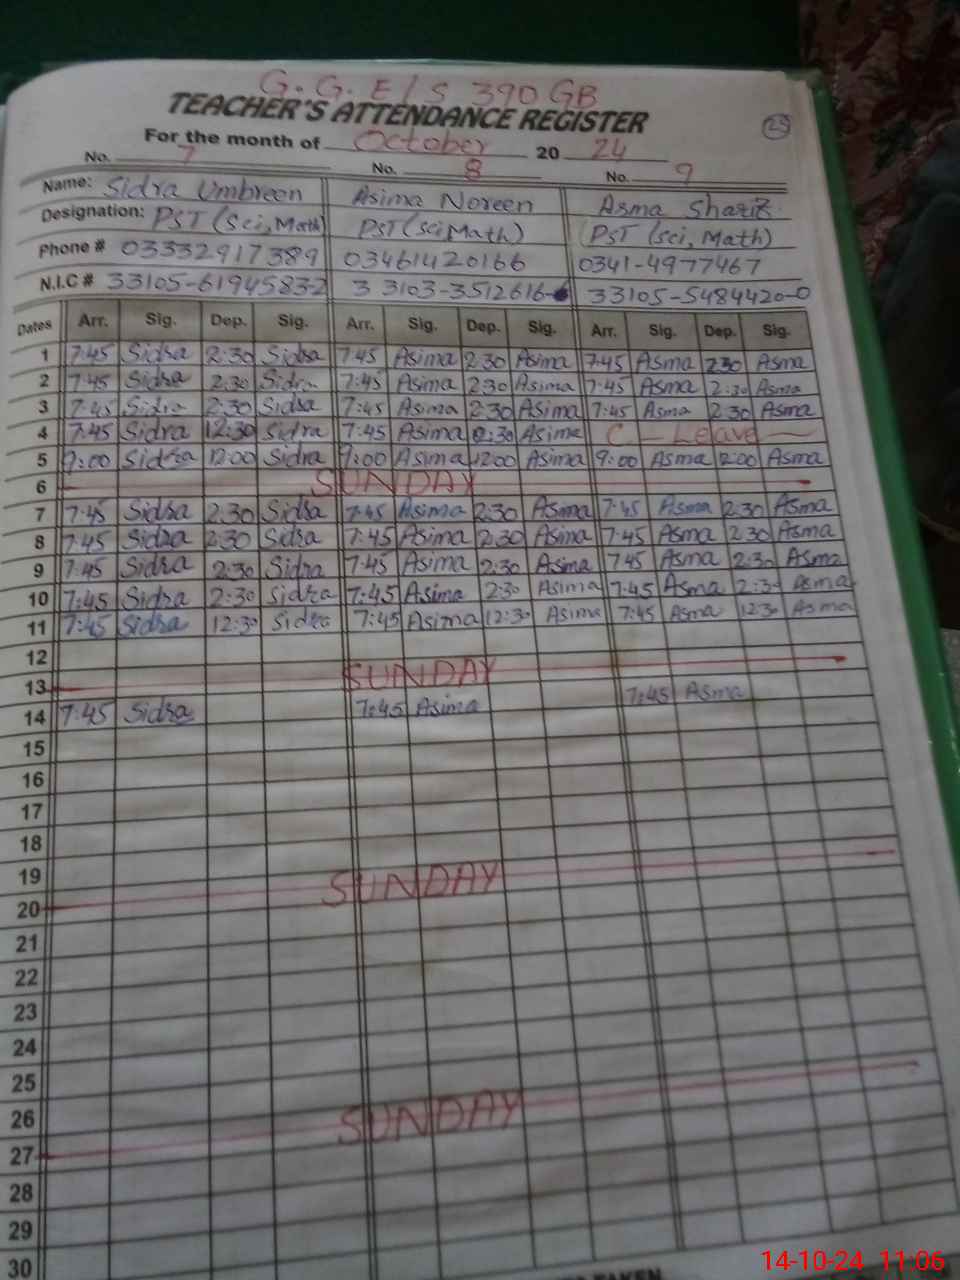 G. G. E/S 390 GB
TEACHER'S ATTENDANCE REGISTER
23
For the month of October 2024
No. 7 No. 8 No. 9
Name: Sidra Umbreen Asima Noreen Asma Sharif
Designation: PST (Sci, Math) PST (Sci Math) PST (Sci, Math)
Phone # 03332917389 03461420166 0341-4977467
N.I.C # 33105-6194583-2 33103-3512616-6 33105-5484420-0
Dates Arr. Sig. Dep. Sig. Arr. Sig. Dep. Sig. Arr. Sig. Dep. Sig.
1 7:45 Sidra 2:30 Sidra 7:45 Asima 2:30 Asima 7:45 Asma 2:30 Asma
2 7:45 Sidra 2:30 Sidra 7:45 Asima 2:30 Asima 7:45 Asma 2:30 Asma
3 7:45 Sidra 2:30 Sidra 7:45 Asima 2:30 Asima 7:45 Asma 2:30 Asma
4 7:45 Sidra 12:30 Sidra 7:45 Asima 12:30 Asima C - Leave
5 9:00 Sidra 12:00 Sidra 9:00 Asima 12:00 Asima 9:00 Asma 12:00 Asma
6 SUNDAY
7 7:45 Sidra 2:30 Sidra 7:45 Asima 2:30 Asima 7:45 Asma 2:30 Asma
8 7:45 Sidra 2:30 Sidra 7:45 Asima 2:30 Asima 7:45 Asma 2:30 Asma
9 7:45 Sidra 2:30 Sidra 7:45 Asima 2:30 Asima 7:45 Asma 2:30 Asma
10 7:45 Sidra 2:30 Sidra 7:45 Asima 2:30 Asima 7:45 Asma 2:30 Asma
11 7:45 Sidra 12:30 Sidra 7:45 Asima 12:30 Asima 7:45 Asma 12:30 Asma
12
13 SUNDAY
14 7:45 Sidra 7:45 Asima 7:45 Asma
15
16
17
18
19
20 SUNDAY
21
22
23
24
25
26
27 SUNDAY
28
29
30
TAKEN
14-10-24 11:06